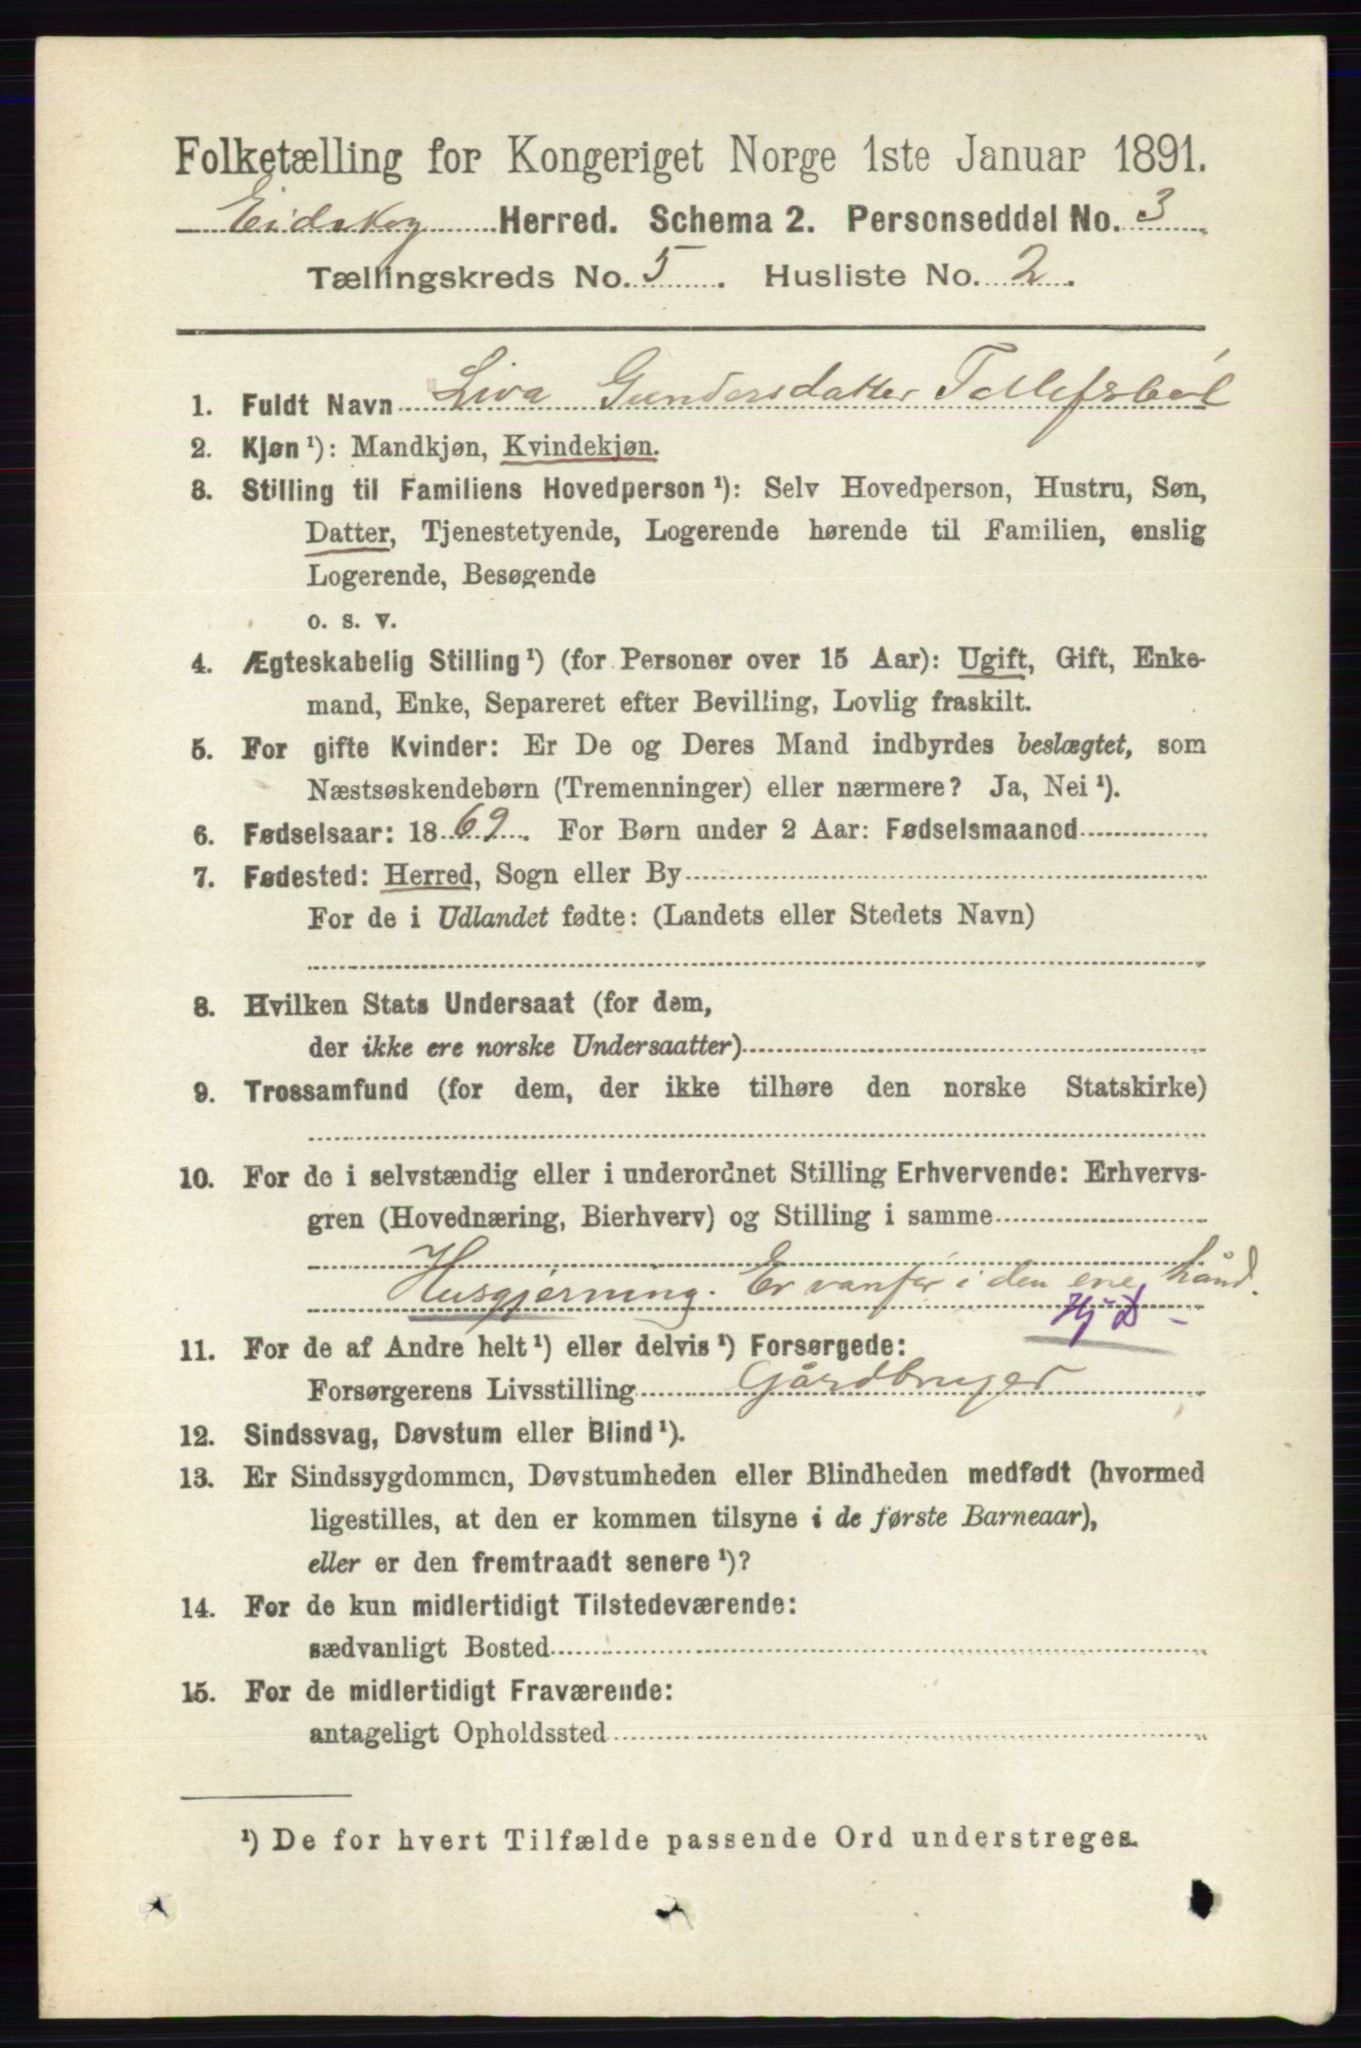 Folketælling for Kongeriget Norge 1ste Januar 1891.
Eidskog Herred. Schema 2. Personseddel No. 3
Tællingskreds No. 5. Husliste No. 2.
1. Fuldt Navn Liva Gundersdatter Tollefsbøl
2. Kjøn¹): Mandkjøn, Kvindekjøn.
3. Stilling til Familiens Hovedperson¹): Selv Hovedperson, Hustru, Søn,
Datter, Tjenestetyende, Logerende hørende til Familien, enslig
Logerende, Besøgende
o. s. v.
4. Ægteskabelig Stilling¹) (for Personer over 15 Aar): Ugift, Gift, Enke-
mand, Enke, Separeret efter Bevilling, Lovlig fraskilt.
5. For gifte Kvinder: Er De og Deres Mand indbyrdes beslægtet, som
Næstsøskendebørn (Tremenninger) eller nærmere? Ja, Nei¹).
6. Fødselsaar: 1869. For Børn under 2 Aar: Fødselsmaaned
7. Fødested: Herred, Sogn eller By
For de i Udlandet fødte: (Landets eller Stedets Navn)
8. Hvilken Stats Undersaat (for dem,
der ikke ere norske Undersaatter)
9. Trossamfund (for dem, der ikke tilhøre den norske Statskirke)
10. For de i selvstændig eller i underordnet Stilling Erhvervende: Erhvervs-
gren (Hovednæring, Bierhverv) og Stilling i samme
Husgjerning. Er vanfør i den ene hånd.
Hj D -
11. For de af Andre helt¹) eller delvis¹) Forsørgede:
Forsørgerens Livsstilling Gårdbruger
12. Sindssvag, Døvstum eller Blind¹).
13. Er Sindssygdommen, Døvstumheden eller Blindheden medfødt (hvormed
ligestilles, at den er kommen tilsyne i de første Barneaar),
eller er den fremtraadt senere¹)?
14. For de kun midlertidigt Tilstedeværende:
sædvanligt Bosted
15. For de midlertidigt Fraværende:
antageligt Opholdssted
¹) De for hvert Tilfælde passende Ord understreges.